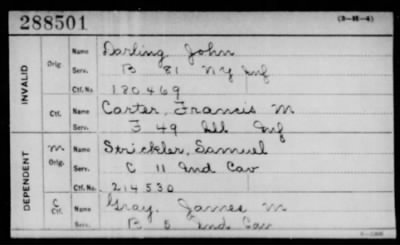 288501
(3-M-4)
INVALID
Orig.
Name Darling John
Serv. B 81 NY Inf
Ctf. No. 130469
Ctf. Name Carter, Francis M
Serv. F 49 Ill Inf
DEPENDENT
M Orig.
Name Strickler, Samuel
Serv. C 11 Ind Cav
Ctf. No. 214530
C Ctf. Name Gray. James M
Serv. B 5 Ind Cav